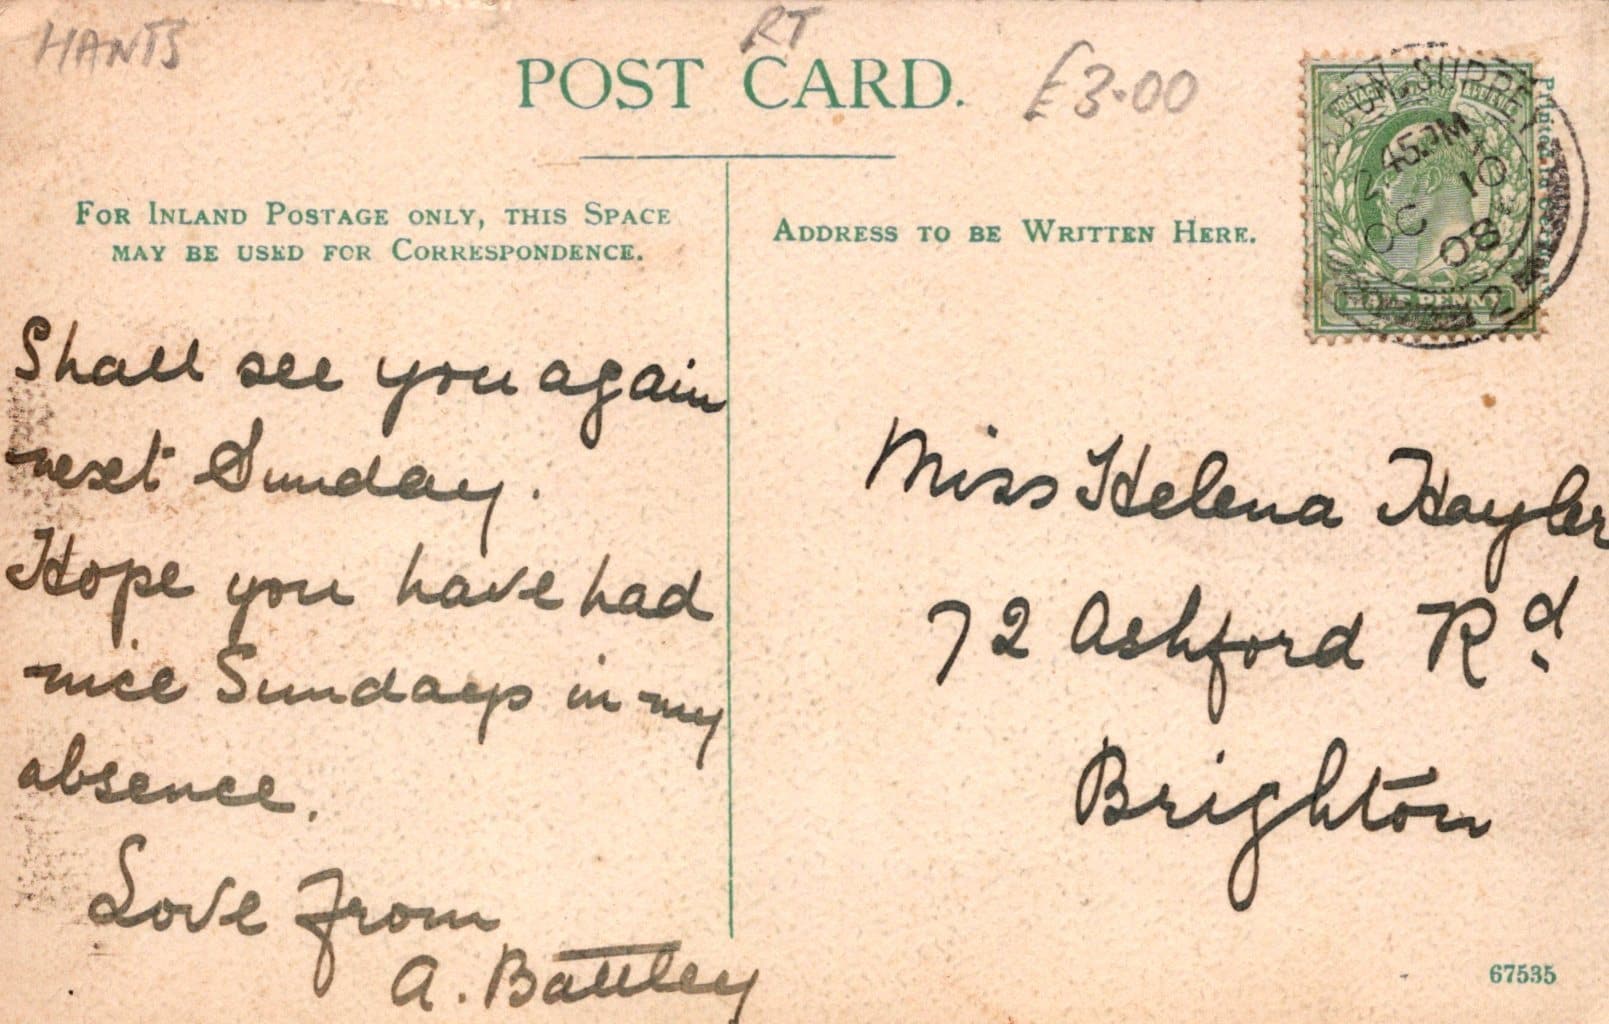 HANTS
RT
POST CARD.
£3.00
FOR INLAND POSTAGE ONLY, THIS SPACE
MAY BE USED FOR CORRESPONDENCE.
ADDRESS TO BE WRITTEN HERE.
SURREY
2.45PM
OC 10
08
2
HALF PENNY
Printed in
Shall see you again
next Sunday.
Hope you have had
nice Sundays in my
absence.
Love from
A. Battley
Miss Helena Hayler
72 Ashford Rd
Brighton
67535